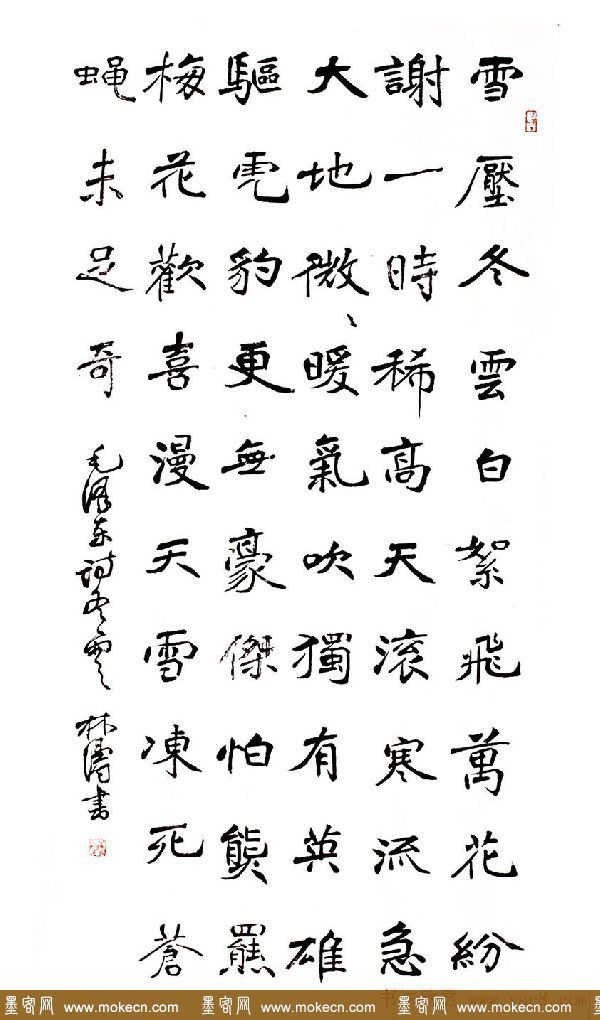 雪壓冬雲白絮飛萬花紛
謝一時稀高天滾寒流急
大地微々暖氣吹獨有英雄
驅虎豹更無豪傑怕熊羆
梅花歡喜漫天雪凍死蒼
蝇未足奇 毛泽东诗冬云 林涛书
墨客网 www.mokecn.com 墨客网 www.mokecn.com 墨客网 www.mokecn.com